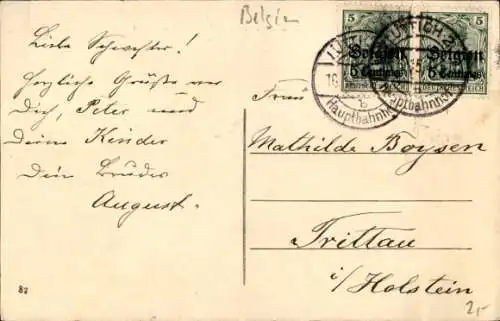 Belgien
5
Belgien
5 Centimes
5
Belgien
5 Centimes
LÜTTICH
Hauptbahnhof
LÜTTICH
Hauptbahnhof
Liebe Schwester!
Herzliche Grüße
Dich, Peter und
Deine Kinder
Dein Bruder
August.
Frau
Mathilde Boysen
Trittau
i/Holstein
82
2,-